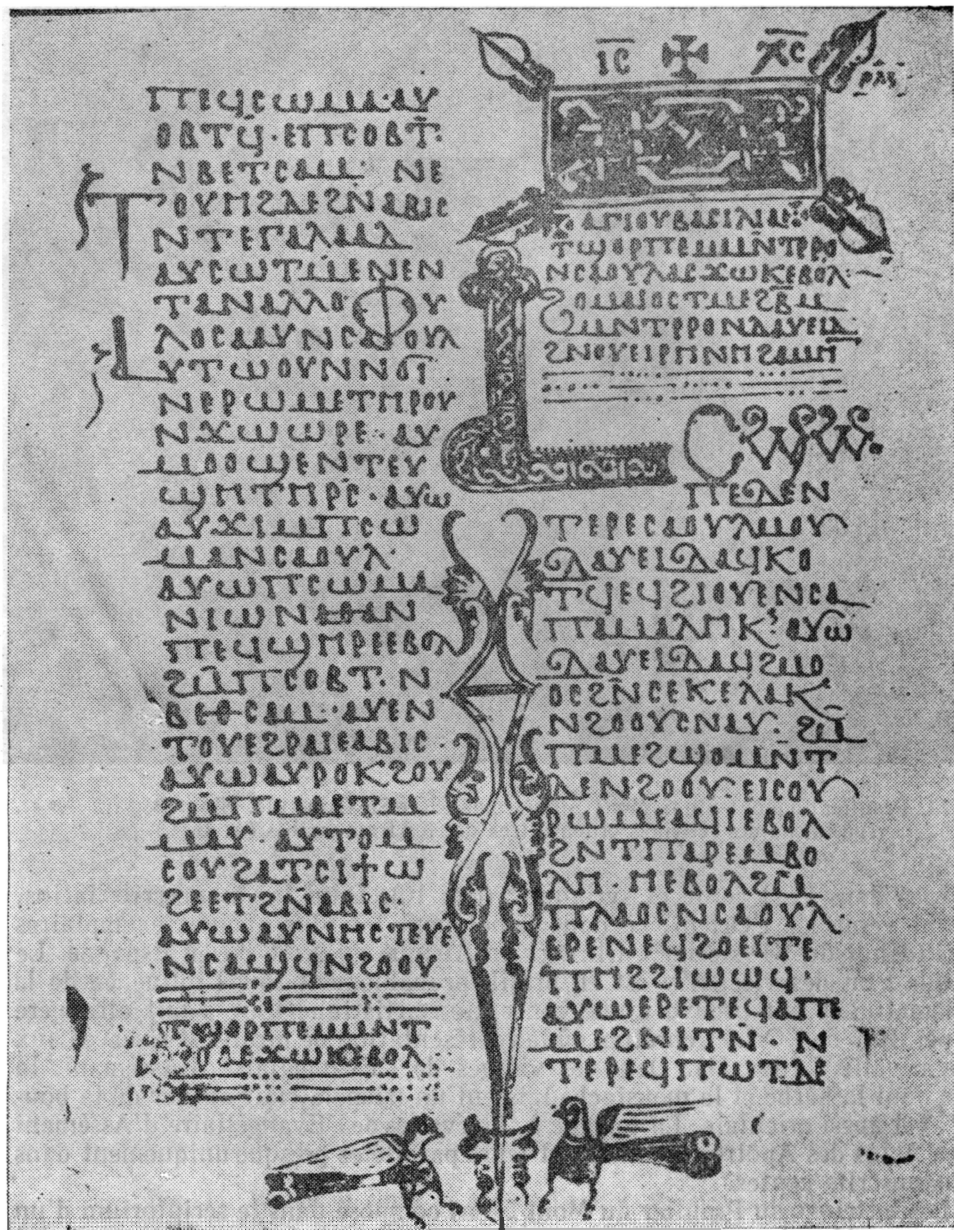 ⲡⲉϥⲥⲱⲙⲁ·ⲁⲩ
ⲟⲃⲧϥ·ⲉⲡⲥⲟⲃⲧ·
ⲛⲃⲉⲧⲥⲁⲙ· ⲛⲉ
ⲧⲟⲩⲏϩⲇⲉϩⲛⲁⲃⲓⲥ
ⲛⲧⲉⲅⲁⲗⲁⲁⲗ
ⲁⲩⲥⲱⲧⲙⲉⲛⲉⲛ
ⲧⲁⲛⲁⲗⲗⲟⲫⲩ
ⲗⲟⲥⲁⲁⲩⲛⲥⲁⲟⲩⲗ
ⲁⲩⲧⲱⲟⲩⲛⲛϭⲓ
ⲛⲉⲣⲱⲙⲉⲧⲏⲣⲟⲩ
ⲛϫⲱⲱⲣⲉ·ⲁⲩ
ⲙⲟⲟϣⲉⲛⲧⲉⲩ
ϣⲏⲧⲏⲣⲥ·ⲁⲩⲱ
ⲁⲩϫⲓⲙⲡⲥⲱ
ⲙⲁⲛⲥⲁⲟⲩⲗ·
ⲁⲩⲱⲡⲥⲱⲙⲁ
ⲛⲓⲱⲛⲁⲑⲁⲛ
ⲡⲉϥϣⲏⲣⲉⲉⲃⲟⲗ
ϩⲙⲡⲥⲟⲃⲧ·ⲛ
ⲃⲉⲑⲥⲁⲙ·ⲁⲩⲉⲛ
ⲧⲟⲩⲉϩⲣⲁⲓⲉⲁⲃⲓⲥ·
ⲁⲩⲱⲁⲩⲣⲟⲕϩⲟⲩ
ϩⲙⲡⲙⲁⲉⲧⲙ
ⲙⲁⲩ·ⲁⲩⲧⲟⲙ
ⲥⲟⲩϩⲁⲧⲥⲓϯⲱ
ϩⲉⲉⲧϩⲛⲁⲃⲓⲥ·
ⲁⲩⲱⲁⲩⲛⲏⲥⲧⲉⲩⲉ
ⲛⲥⲁϣϥⲛϩⲟⲟⲩ
ⲧϣⲟⲣⲡⲉⲙⲙⲛⲧ
ϫⲱⲕⲉⲃⲟⲗ
ⲓ̅ⲥ̅ ✠ ⲭ̅ⲥ̅
ⲣⲗⲋ
ⲁⲅⲓⲟⲩⲃⲁⲥⲓⲗⲓⲁⲥ
ⲧϣⲟⲣⲡⲉⲙⲙⲛⲧⲣⲣⲟ
ⲛⲥⲁⲟⲩⲗⲁⲥϫⲱⲕⲉⲃⲟⲗ·
ϩⲟⲙⲁⲓⲟⲥⲧⲙⲉϩⲃ̅ⲙ
ⲙⲛⲧⲣⲣⲟⲛⲇⲁⲩⲉⲓⲇ·
ϩⲛⲟⲩⲉⲓⲣⲏⲛⲏϩⲁⲙⲏ
ⲁⲥϣⲱ
ⲡⲉⲇⲉⲛ
ⲧⲉⲣⲉⲥⲁⲟⲩⲗⲙⲟⲩ
ⲇⲁⲩⲉⲓⲇⲁϥⲕⲟ
ⲧϥⲉϥϩⲓⲟⲩⲉⲛⲥⲁ
ⲡⲁⲙⲁⲗⲏⲕ·ⲁⲩⲱ
ⲇⲁⲩⲉⲓⲇⲁϥϩⲙⲟ
ⲟⲥϩⲛⲥⲉⲕⲉⲗⲁⲕ
ⲛϩⲟⲟⲩⲥⲛⲁⲩ·ϩⲙ
ⲡⲙⲉϩϣⲟⲙⲛⲧ
ⲇⲉⲛϩⲟⲟⲩ·ⲉⲓⲥⲟⲩ
ⲣⲱⲙⲉⲁϥⲓⲉⲃⲟⲗ
ϩⲛⲧⲡⲁⲣⲉⲙⲃⲟ
ⲗⲏ·ⲏⲉⲃⲟⲗϩⲙ
ⲡⲗⲁⲟⲥⲛⲥⲁⲟⲩⲗ·
ⲉⲣⲉⲛⲉϥϩⲟⲉⲓⲧⲉ
ⲡⲏϩϩⲓⲱⲱϥ·
ⲁⲩⲱⲉⲣⲉⲧⲉϥⲁⲡⲉ
ⲙⲉϩⲛⲓⲧⲛ·ⲛ
ⲧⲉⲣⲉϥⲡⲱⲧⲇⲉ